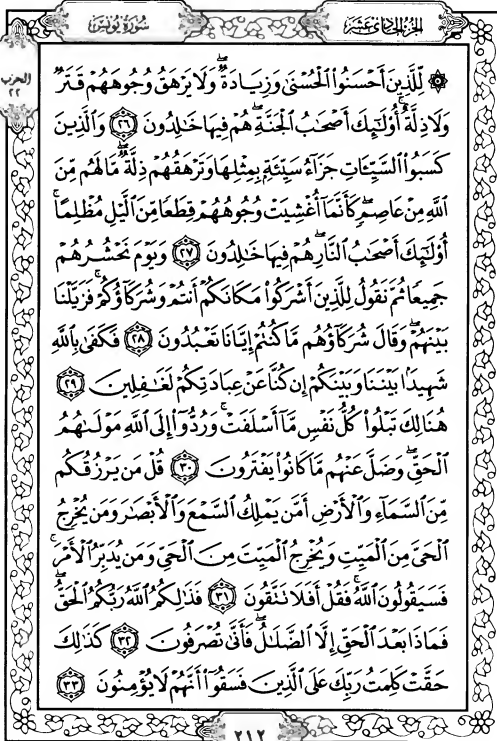 سُورَةُ يُونُسَ
الجُزءُ الحَادِي عَشَرَ
الحزب
٢٢
۞ لِّلَّذِينَ أَحْسَنُوا۟ ٱلْحُسْنَىٰ وَزِيَادَةٌ ۖ وَلَا يَرْهَقُ وُجُوهَهُمْ قَتَرٌ
وَلَا ذِلَّةٌ ۚ أُو۟لَـٰٓئِكَ أَصْحَـٰبُ ٱلْجَنَّةِ ۖ هُمْ فِيهَا خَـٰلِدُونَ ٢٦ وَٱلَّذِينَ
كَسَبُوا۟ ٱلسَّيِّـَٔاتِ جَزَآءُ سَيِّئَةٍۭ بِمِثْلِهَا وَتَرْهَقُهُمْ ذِلَّةٌ ۖ مَّا لَهُم مِّنَ
ٱللَّهِ مِنْ عَاصِمٍ ۖ كَأَنَّمَآ أُغْشِيَتْ وُجُوهُهُمْ قِطَعًا مِّنَ ٱلَّيْلِ مُظْلِمًا ۚ
أُو۟لَـٰٓئِكَ أَصْحَـٰبُ ٱلنَّارِ ۖ هُمْ فِيهَا خَـٰلِدُونَ ٢٧ وَيَوْمَ نَحْشُرُهُمْ
جَمِيعًا ثُمَّ نَقُولُ لِلَّذِينَ أَشْرَكُوا۟ مَكَانَكُمْ أَنتُمْ وَشُرَكَآؤُكُمْ ۚ فَزَيَّلْنَا
بَيْنَهُمْ ۖ وَقَالَ شُرَكَآؤُهُم مَّا كُنتُمْ إِيَّانَا تَعْبُدُونَ ٢٨ فَكَفَىٰ بِٱللَّهِ
شَهِيدًۢا بَيْنَنَا وَبَيْنَكُمْ إِن كُنَّا عَنْ عِبَادَتِكُمْ لَغَـٰفِلِينَ ٢٩
هُنَالِكَ تَبْلُوا۟ كُلُّ نَفْسٍ مَّآ أَسْلَفَتْ ۚ وَرُدُّوٓا۟ إِلَى ٱللَّهِ مَوْلَىٰهُمُ
ٱلْحَقِّ ۖ وَضَلَّ عَنْهُم مَّا كَانُوا۟ يَفْتَرُونَ ٣٠ قُلْ مَن يَرْزُقُكُم
مِّنَ ٱلسَّمَآءِ وَٱلْأَرْضِ أَمَّن يَمْلِكُ ٱلسَّمْعَ وَٱلْأَبْصَـٰرَ وَمَن يُخْرِجُ
ٱلْحَىَّ مِنَ ٱلْمَيِّتِ وَيُخْرِجُ ٱلْمَيِّتَ مِنَ ٱلْحَىِّ وَمَن يُدَبِّرُ ٱلْأَمْرَ ۚ
فَسَيَقُولُونَ ٱللَّهُ ۚ فَقُلْ أَفَلَا تَتَّقُونَ ٣١ فَذَٰلِكُمُ ٱللَّهُ رَبُّكُمُ ٱلْحَقُّ ۖ
فَمَاذَا بَعْدَ ٱلْحَقِّ إِلَّا ٱلضَّلَـٰلُ ۖ فَأَنَّىٰ تُصْرَفُونَ ٣٢ كَذَٰلِكَ
حَقَّتْ كَلِمَتُ رَبِّكَ عَلَى ٱلَّذِينَ فَسَقُوٓا۟ أَنَّهُمْ لَا يُؤْمِنُونَ ٣٣
٢١٢